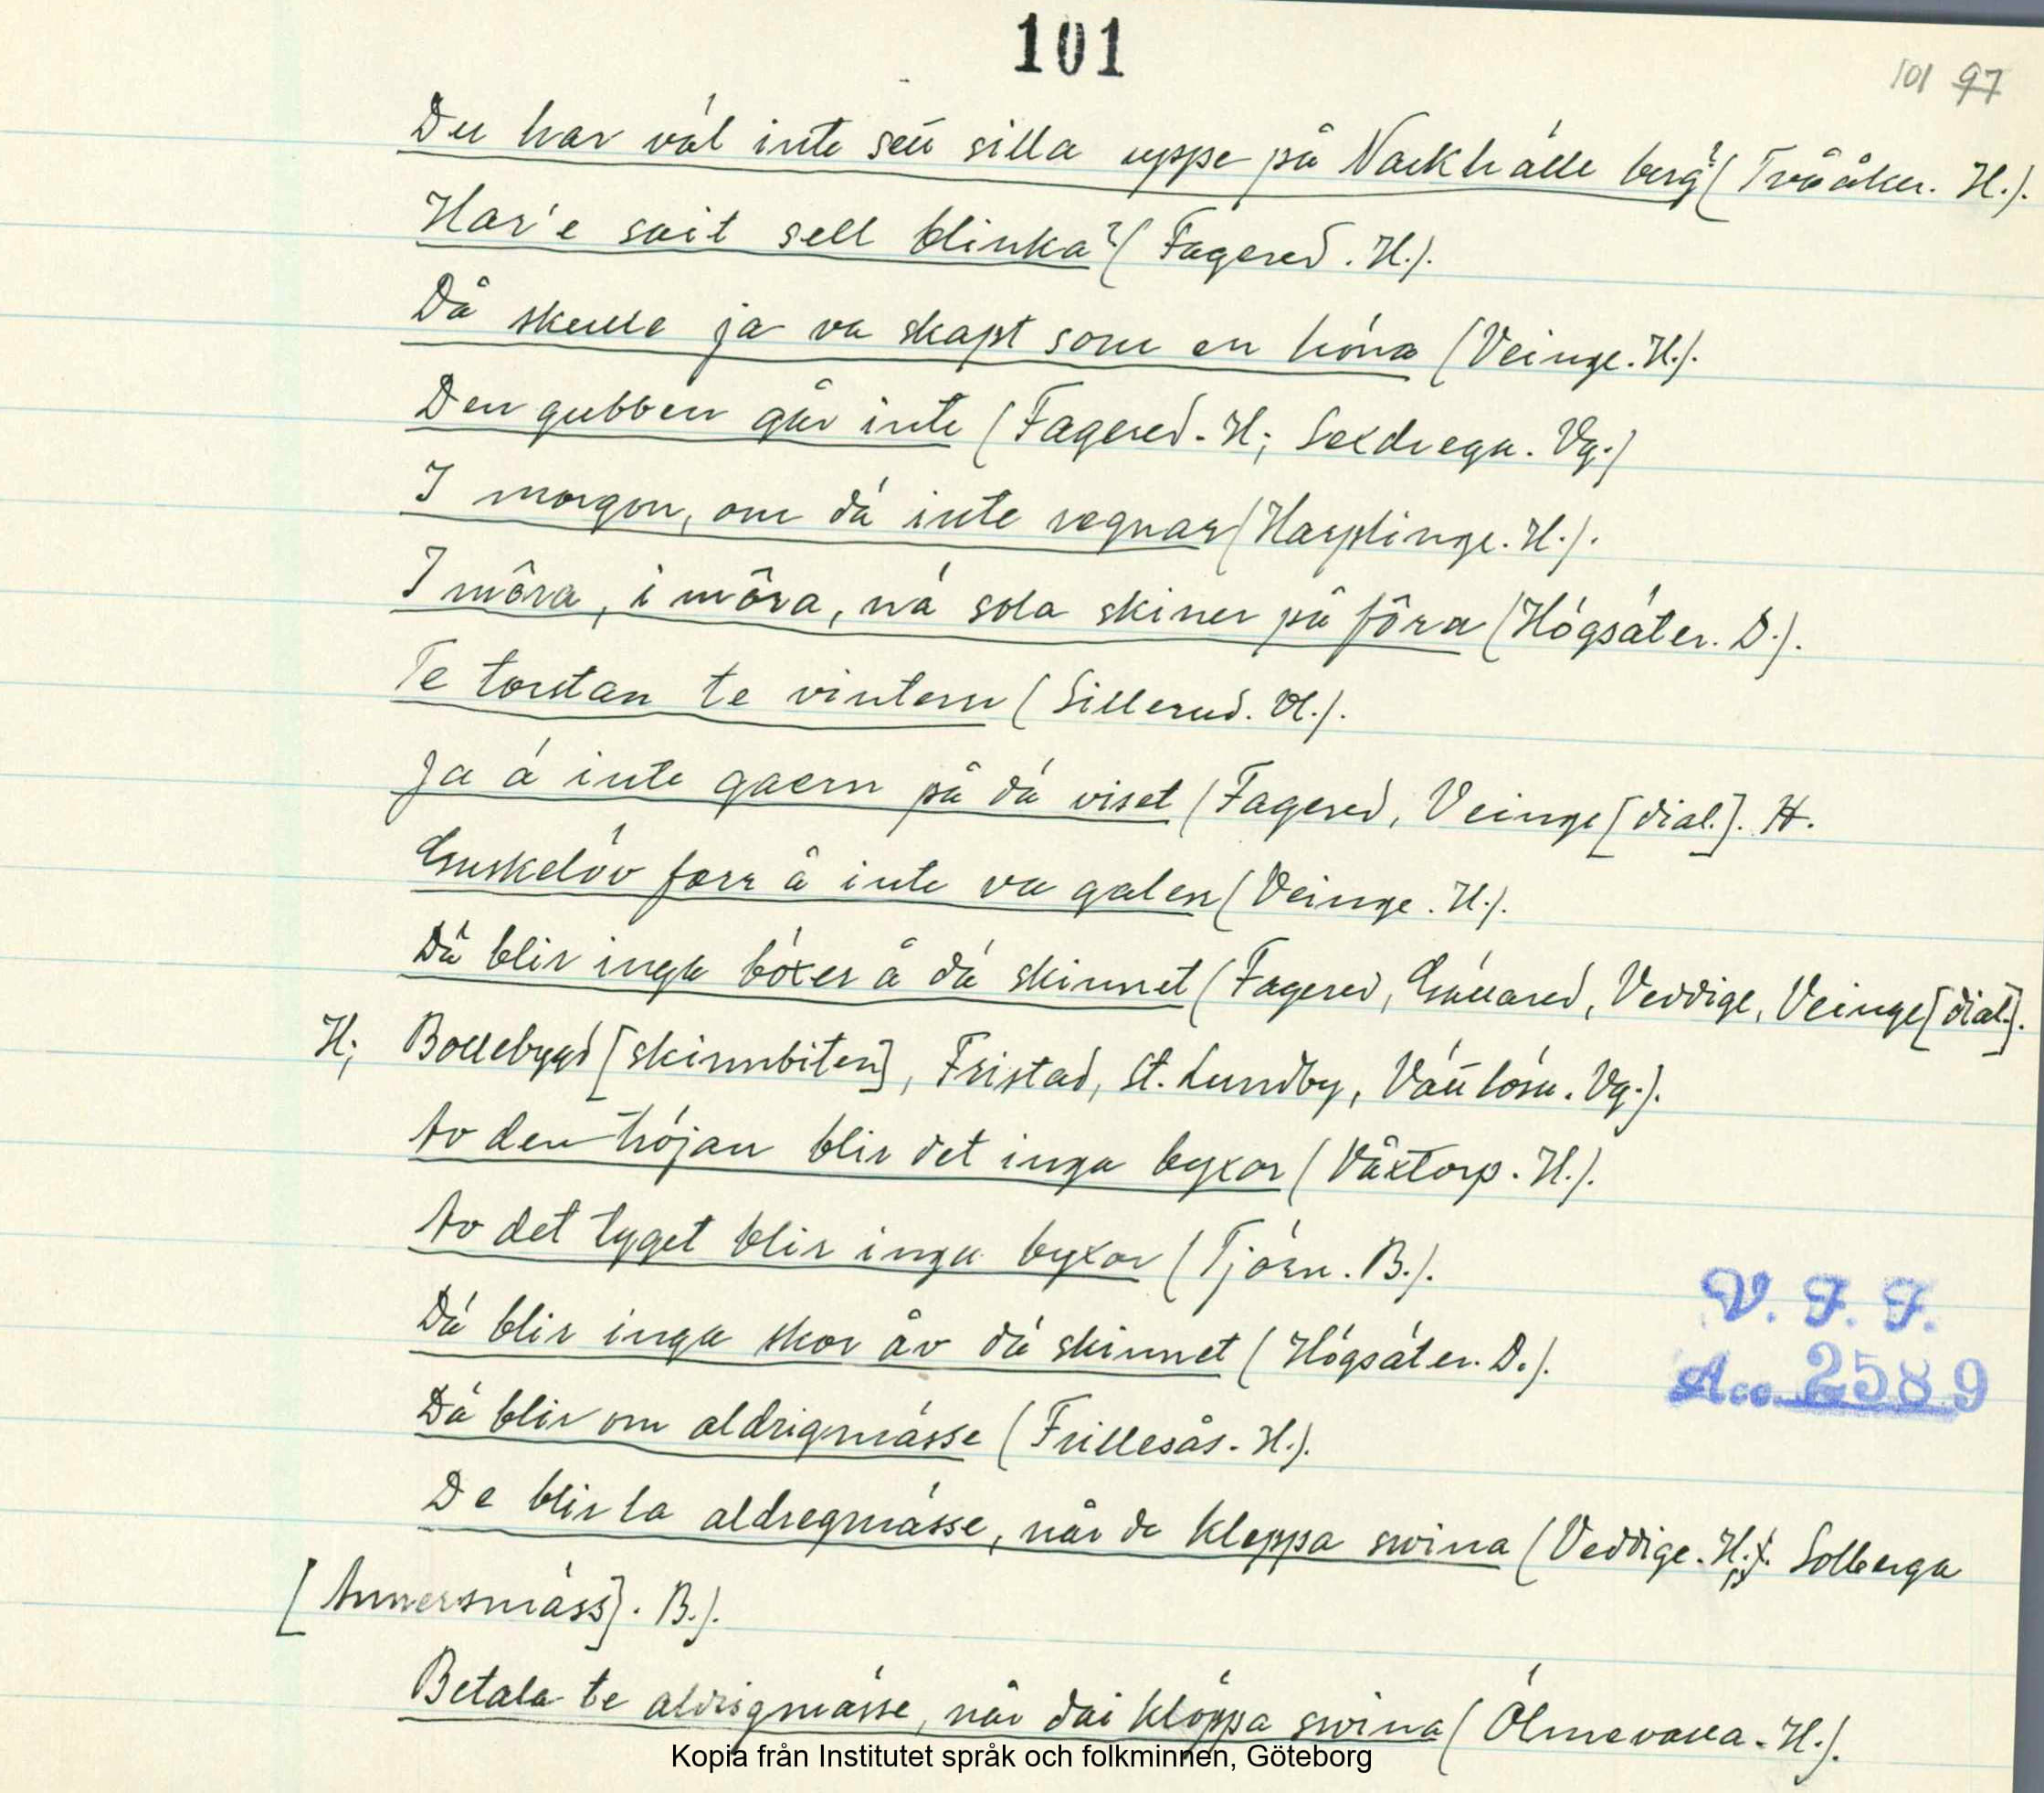 101
101 97
Du har väl inte sett silla uppe på Nackhälle berg? (Tvååker. H.).
Har'e sait sell blinka? (Fagered. H.).
Då skulle ja va skapt som en höna (Veinge. H.).
Den gubben går inte (Fagered. H; Sexdrega. Vg.)
I morgon, om dä inte regnar (Harplinge. H.).
I môra, i môra, nä sola skiner på fôra (Högsäter. D.).
Te torstan te vintern (Sillerud. Vl.).
Ja ä inte gaern på dä viset (Fagered, Veinge [dial.]. H.
Guskelöv forr å inte va galen (Veinge. H.).
Dä blir inga böxer å dä skinnet (Fagered, Gällared, Veddige, Veinge [dial.].
H; Bollebygd [skinnbiten], Fristad, St. Lundby, Vänlösa. Vg.).
Av den tröjan blir det inga byxor (Våxtorp. H.).
Av det tyget blir inga byxor (Tjörn. B.).
Dä blir inga skor åv dä skinnet (Högsäter. D.).
V. F. F.
Acc. 2589
Dä blir om aldrigmässe (Frillesås. H.).
De blir la aldregmässe, når de kleppa svina (Veddige. H.; Solberga
[Annersmäss]. B.).
Betala te aldrigmässe, når dai klöppa svina (Ölmevalla. H.).
Kopia från Institutet språk och folkminnen, Göteborg